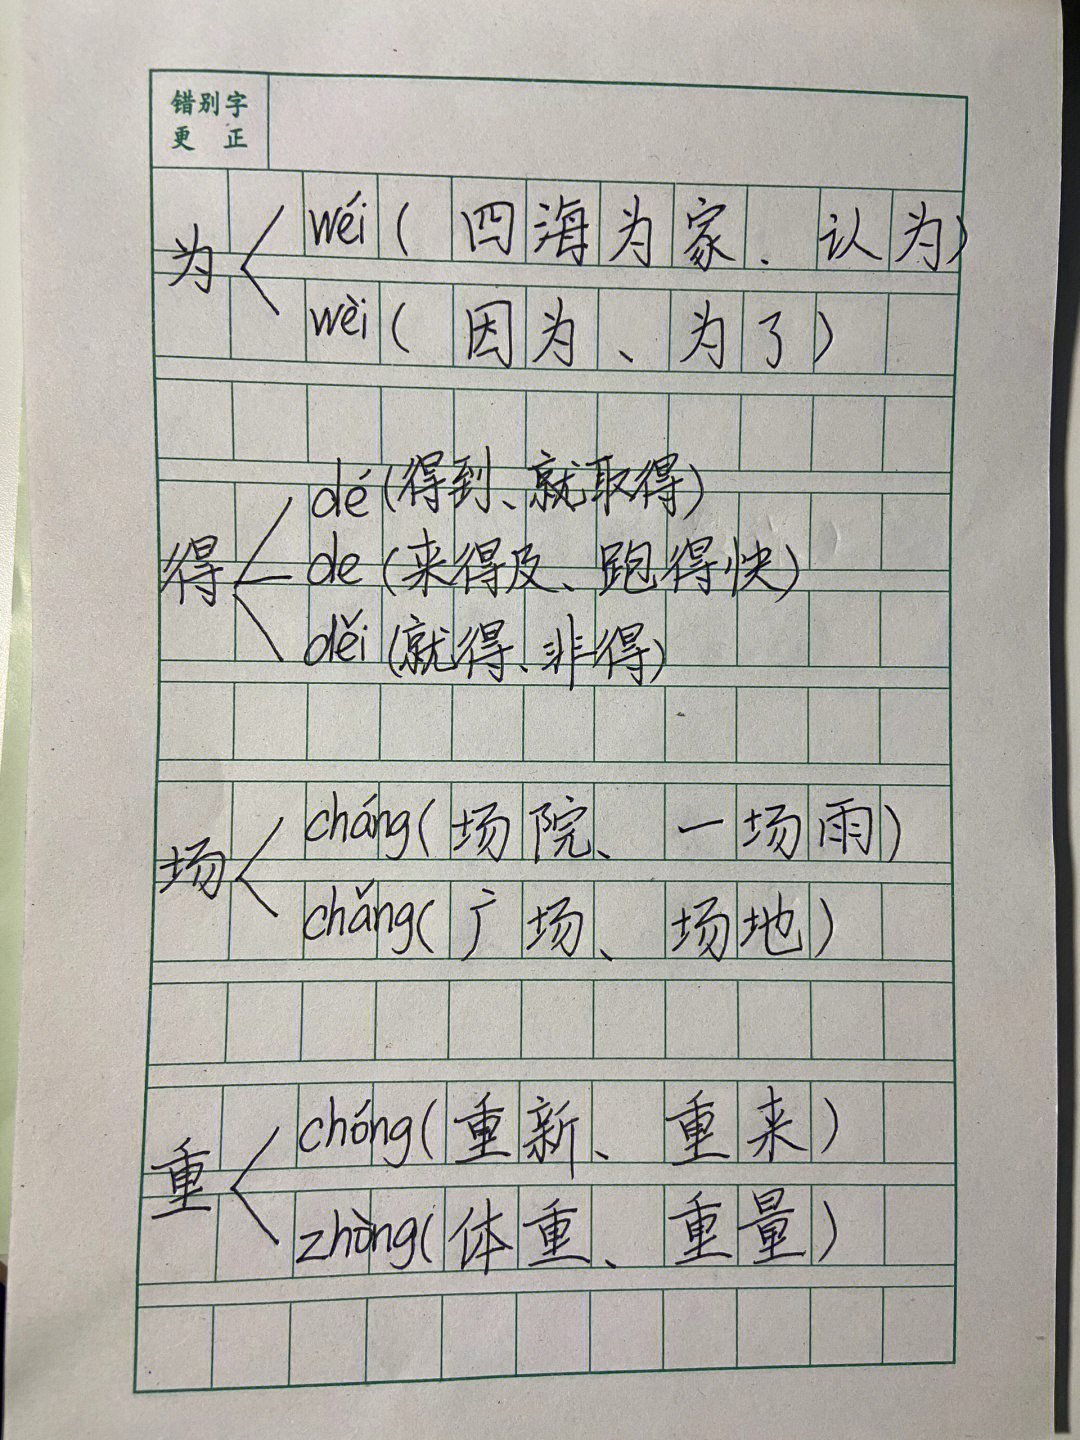 错别字
更 正
为
wéi ( 四海为家 . 认为)
wèi ( 因为、为了)
得
dé (得到、就取得)
de (来得及、跑得快)
děi (就得、非得)
场
cháng( 场院、一场雨)
chǎng( 广场、场地)
重
chóng( 重新、重来)
zhòng( 体重、重量)